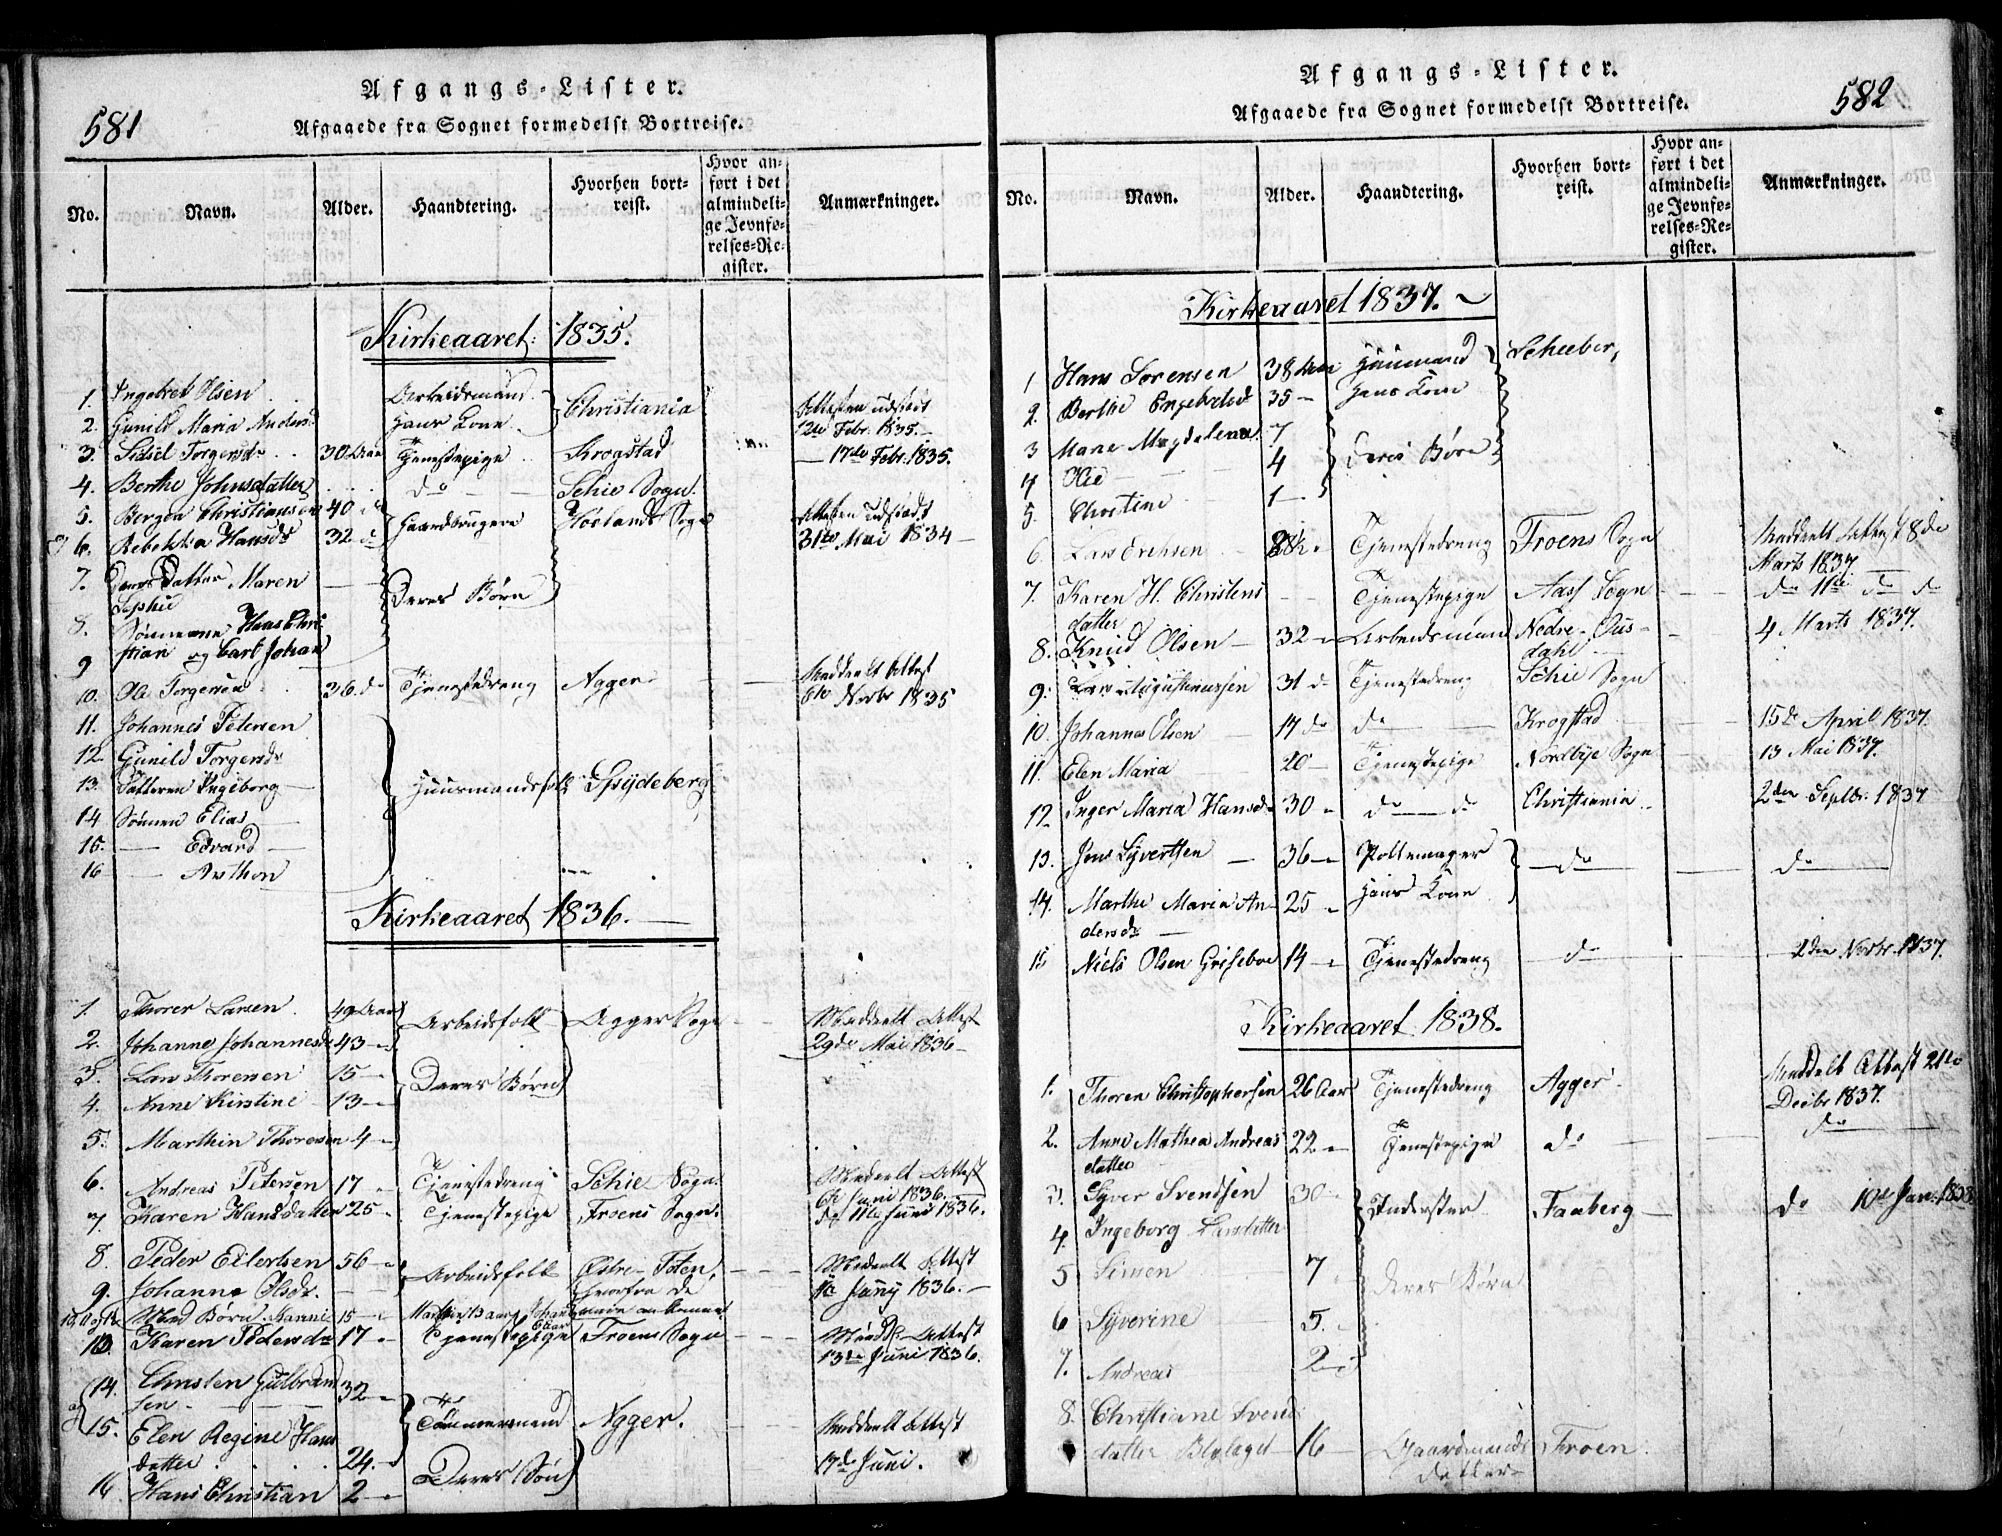 581
Afgangs-Lister.
Afgaaede fra Sognet formedelst Bortreise.
No. Navn. Alder. Haandtering. Hvorhen bortreist. Hvor anført i det almindelige Jevnførelses-Register. Anmærkninger.
Kirkeaaret 1835.
1. Ingebret Olsen Arbeidsmand Christiania Attesten udstædt
2. Gunild Maria Anders. Hans Kone 12te Febr. 1835.
3. Sidsel Torgersdr 30 Aar Tjenestepige Krogstad 17de Febr. 1835.
4. Berthe Johnsdatter do Schie Sogn.
5. Berger Christiansen 40 d Gaardbrugere Høelands Sogn Attesten udstædt
6. Rebekka Hansdr 32 d 31te Mai 1834
7. Deres Datter Maren Sophie Deres Børn
8. Sønnerne Hans Christian
9 og Carl Johan
10. Ole Torgersen 36 do Tjenestedreng Agger Meddeelt Attest 6te Novbr 1835
11. Johannes Petersen
12 Gunild Torgersdr
13. Datteren Ingeborg Huusmandsfolk Spydeberg
14 Sønnen Elias
15. Edvard
16 Anthon
Kirkeaaret 1836.
1. Thorer Larsen 49 Aar Arbeidsfolk Agger Sogn Meddeelt Attest
2. Johanne Johannesdr 43 29de Mai 1836
3. Lars Thoresen 15 Deres Børn
4. Anne Kirstine 13
5. Marthin Thoresen 4
6. Andreas Petersen 17 Tjenestedreng Schie Sogn Meddeelt Attest 6te Juni 1836.
7 Karen Hansdatter 25 Tjenestepige Froens Sogn. do 11te Juni 1836.
8. Peder Eilertsen 56 Arbeidsfolk Østre Toten, Meddeelt Attest
9. Johanne Olsdr. hvorfra de 11te Juny 1836.
10, 11 og 12 Med Børn: Hanne 15 Mathis 13 Aar Johan Aar nu ere ankomne
13. Karen Pedersdr 17 Tjenestepige Froens Sogn Medd. Attest 13de Juni 1836.
14. Christen Gulbrandsen 32 Tømmermand Agger. Meddeelt Attest
15. Elen Regine Hansdatter 24. 17de Juni.
16 Hans Christian 2 Deres Søn
582
Afgangs-Lister.
Afgaaede fra Sognet formedelst Bortreise.
No. Navn. Alder. Haandtering. Hvorhen bortreist. Hvor anført i det almindelige Jevnførelses-Register. Anmærkninger.
Kirkeaaret 1837.
1 Hans Sørensen 38 Aar Huusmand
2. Berthe Engebretsd 35 Hans Kone
3 Maren Magdalena 7 Deres Børn
4 Ole 4
5. Christine 1
6. Lars 28½ Tjenestedreng Froens Sogn Meddeelt Attest 8de Marts 1837
7. Karen H. Christensdatter Tjenestepige Aass Sogn do 11te do do
8. Knud Olsen 32 Arbeidsmand Nedre-Qusdahl 4 Marts 1837.
9. Lars Augustinussen 31 d Tjenestedreng Schie Sogn
10. Johannes Olsen 17 do do Krogstad 15de April 1837.
11. Elen Maria 20 Tjenestepige Nordbye Sogn 13 Mai 1837.
12 Inger Maria Hansdr 30 do do Christiania 2den Septbr. 1837
13. Jens Syvertsen 36 Pottemager do do
14. Marthe Maria Andersdr 25 Hans Kone
15 Niels Olsen Griseboe 14 Tjenestedreng do 2den Novbr. 1837.
Kirkeaaret 1838.
1. Thoren Christophersen 26 Aar Tjenestedreng Agger Meddelt Attest 21de Decbr 1837.
2. Anne Mathea Andreasdatter 22 Tjenestepige do do
3. Syver Svendsen 30 Inderster Faaberg do 10de Jan. 1838
4. Ingeborg Larsdatter
5 Simen 7 deres Børn
6 Syverine 5.
7. Andreas 2
8. Christiane Svendsdatter 16 Gaardmands Datter Froen.